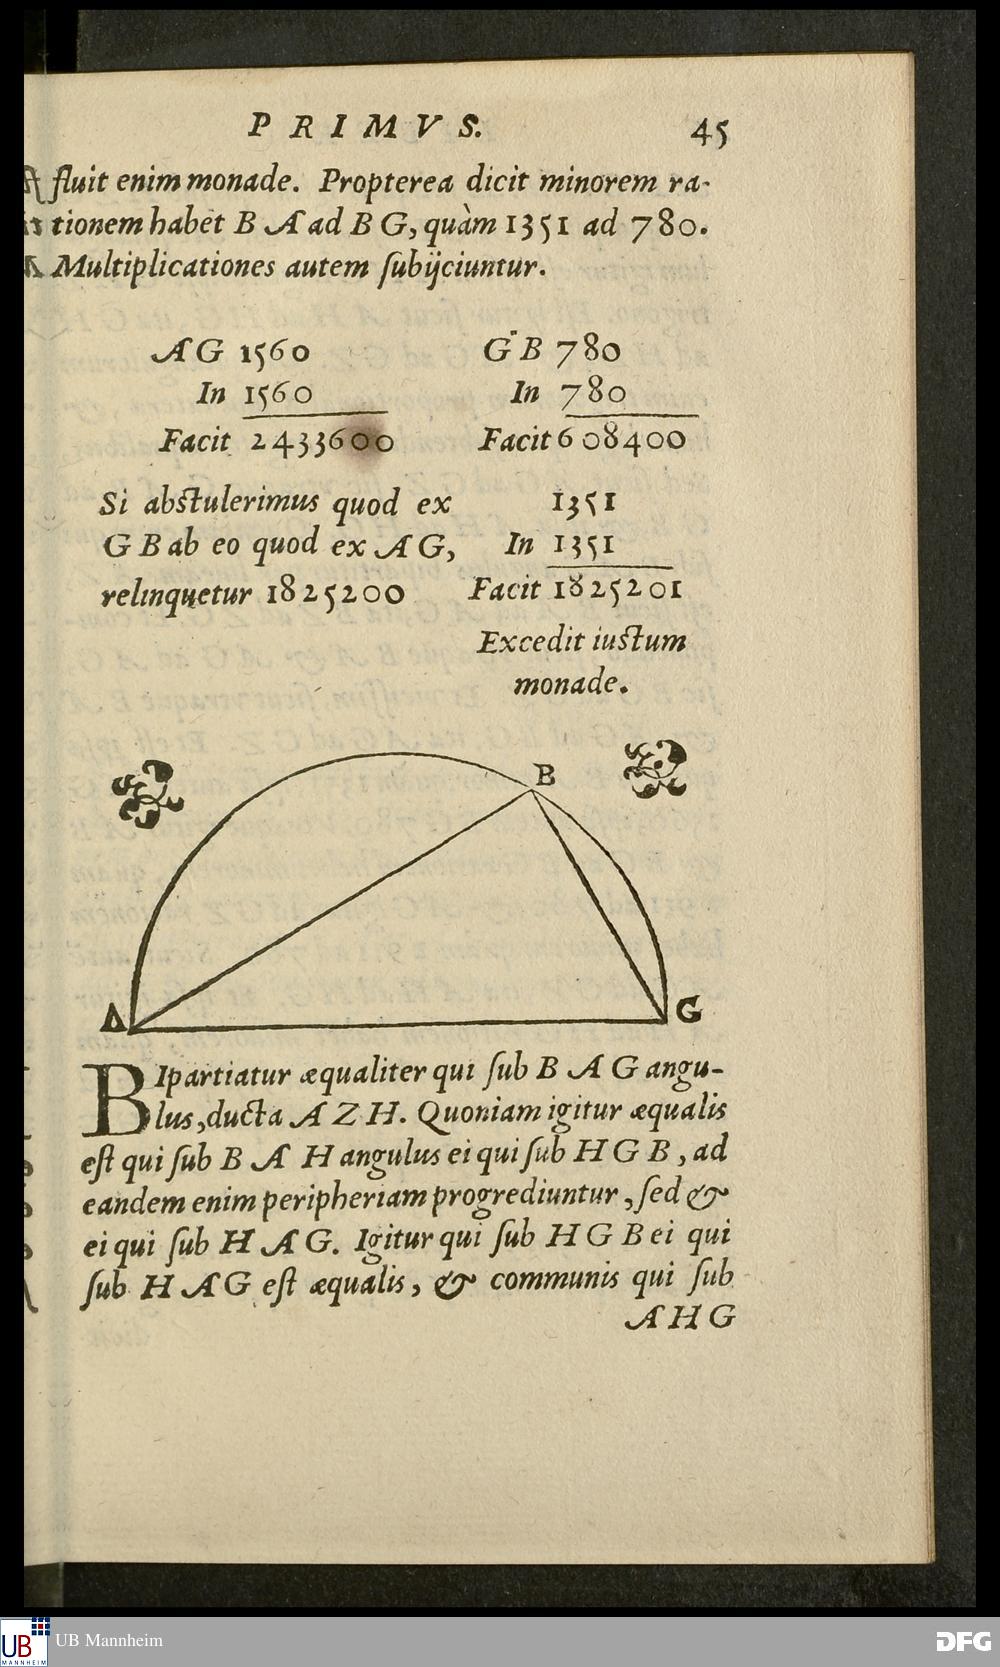 PRIMVS. 45
fluit enim monade. Propterea dicit minorem ra-
tionem habet B A ad B G, quàm 1351 ad 780.
Multiplicationes autem ſubijciuntur.
A G 1560
In 1560
Facit 2433600
G B 780
In 780
Facit 608400
Si abſtulerimus quod ex
G B ab eo quod ex A G,
relinquetur 1825200
1351
In 1351
Facit 1825201
Excedit iuſtum
monade.
B
A G
BIpartiatur æqualiter qui ſub B A G angu-
lus, ducta A Z H. Quoniam igitur æqualis
eſt qui ſub B A H angulus ei qui ſub H G B, ad
eandem enim peripheriam progrediuntur, ſed &
ei qui ſub H A G. Igitur qui ſub H G B ei qui
ſub H A G eſt æqualis, & communis qui ſub
A H G
UB MANNHEIM
UB Mannheim
DFG